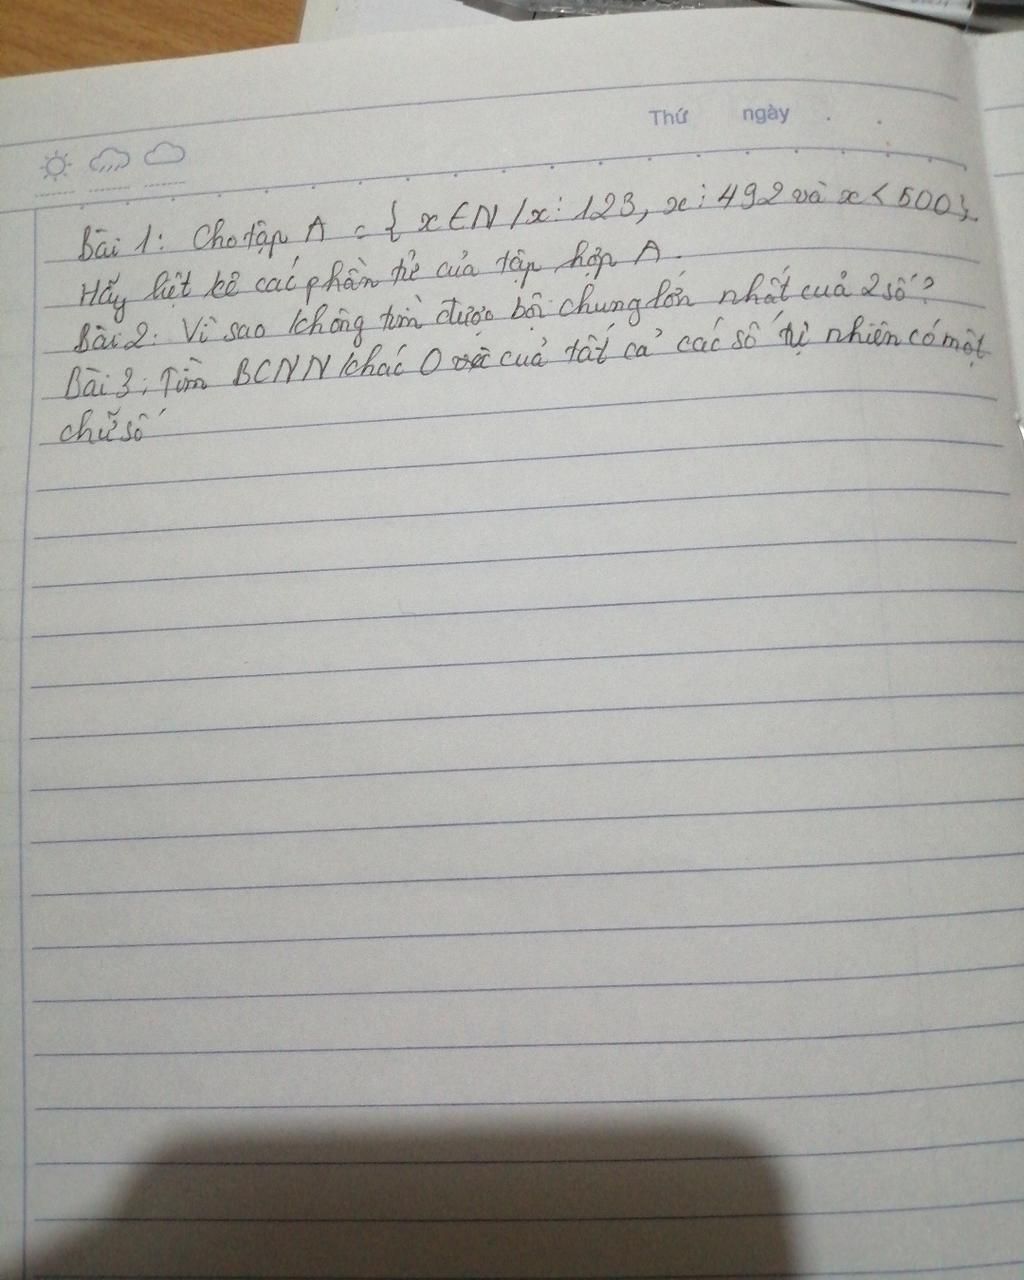 Thứ ngày . .
Bài 1: Cho tập A = { x ∈ N / x ⋮ 123, x ⋮ 492 và x < 500}.
Hãy liệt kê các phần tử của tập hợp A.
Bài 2: Vì sao không tìm được bội chung lớn nhất của 2 số?
Bài 3: Tìm BCNN khác 0 của tất cả các số tự nhiên có một
chữ số